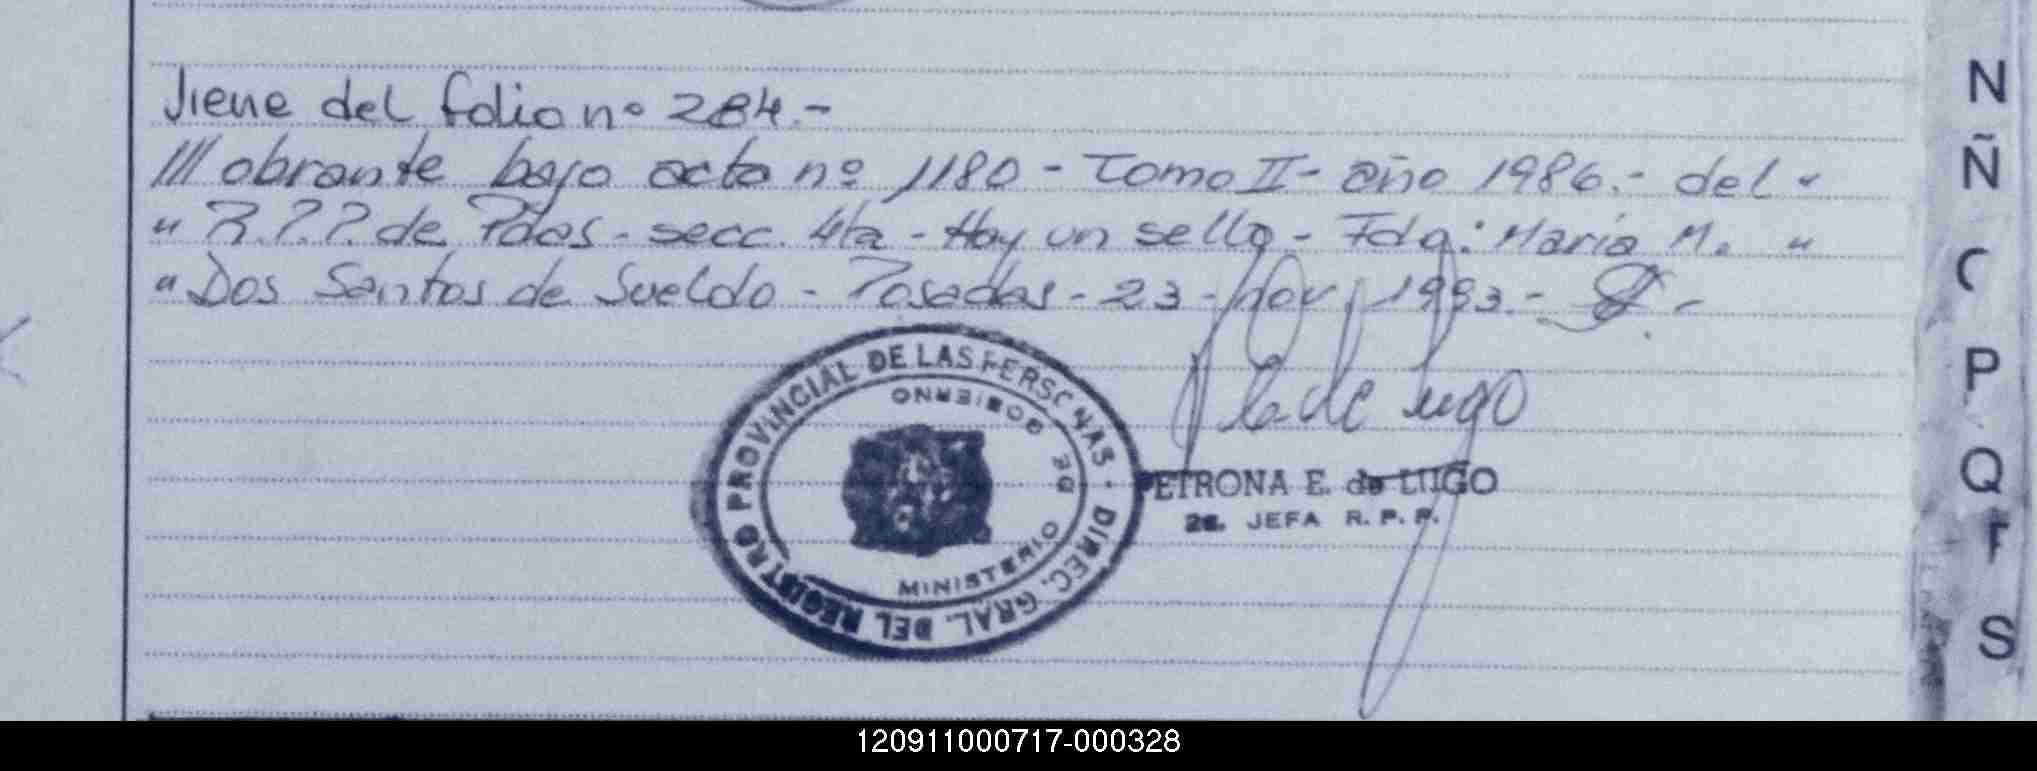 Viene del folio nº 284.-
/// obrante bajo acta nº 1180 - Tomo II - año 1986.- del "
" R.P.P. de Pdas - secc. 4ta - Hay un sello - Fdo: María M. "
" Dos Santos de Sueldo - Posadas - 23 - nov. 1993.-
REGISTRO PROVINCIAL DE LAS PERSONAS - DIREC. GRAL. DEL
MINISTERIO DE GOBIERNO
de Lugo
PETRONA E. de LUGO
2a. JEFA R. P. P.
N
Ñ
P
Q
S
120911000717-000328